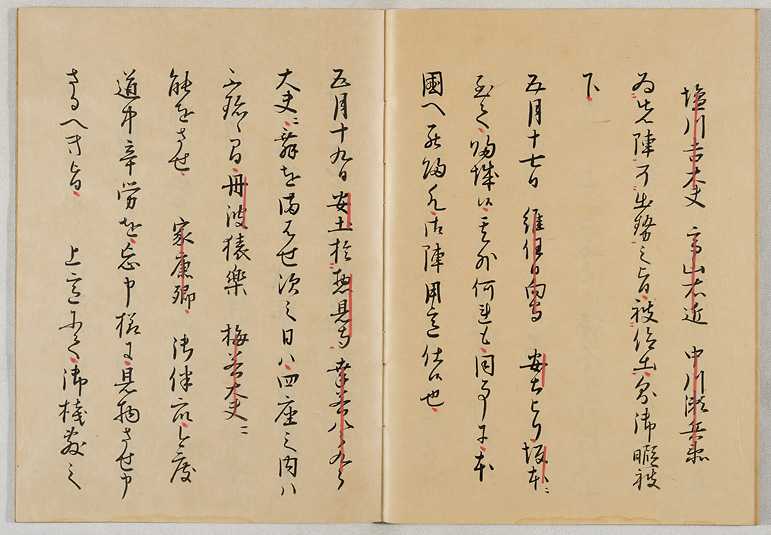 塩川吉大夫 高山右近 中川瀬兵衛
為先陣可出勢之旨被仰出即御暇被
下
五月十七日 維任日向守 安土より坂本ニ
至て帰城候其外何連も同事に本
國へ罷帰 御陣用意仕候也
五月十九日安土於惣見寺 幸若八郎九郎
大夫ニ舞を満ハせ次之日ハ四座之内ハ
不珍候間丹波猿楽 梅若大夫ニ
能をさせ 家康卿 御伴衆今度
道中辛労を忘申様に見物させ申
さるへき旨 上意にて御桟敷之